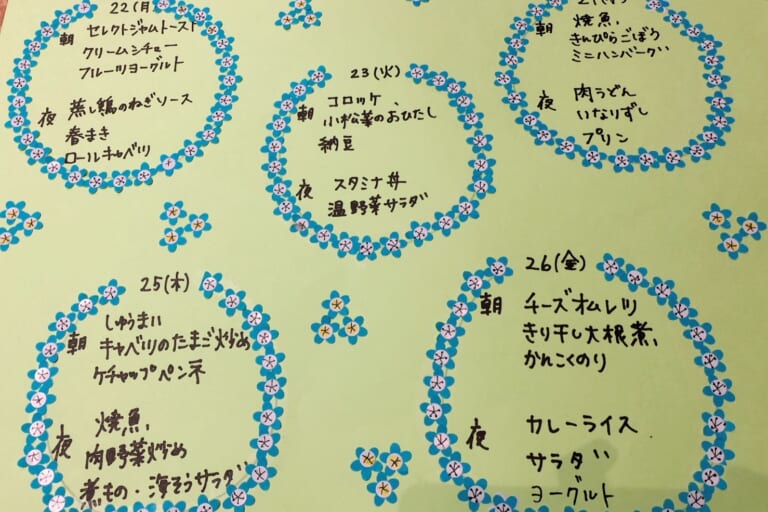 22(月)
朝 セレクトジャムトースト
クリームシチュー
フルーツヨーグルト
夜 蒸し鶏のねぎソース
春まき
ロールキャベツ
23(火)
朝 コロッケ、
小松菜のおひたし
納豆
夜 スタミナ丼
温野菜サラダ
朝 焼魚、
きんぴらごぼう
ミニハンバーグ
夜 肉うどん
いなりずし
プリン
25(木)
朝 しゅうまい
キャベツのたまご炒め
ケチャップペンネ
夜 焼魚、
肉野菜炒め
煮もの・海そうサラダ
26(金)
朝 チーズオムレツ
きり干し大根煮、
かんこくのり
夜 カレーライス
サラダ
ヨーグルト